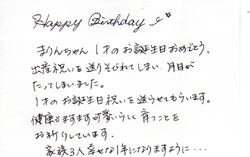 Happy Birthday
まりんちゃん 1才のお誕生日おめでとう。
出産祝いを送りそびれてしまい 月日が
たってしまいました。
1才のお誕生日祝いを送らせてもらいます。
健康でますます可愛いらしく育つことを
お祈りしています。
家族3人幸せな1年になりますように…